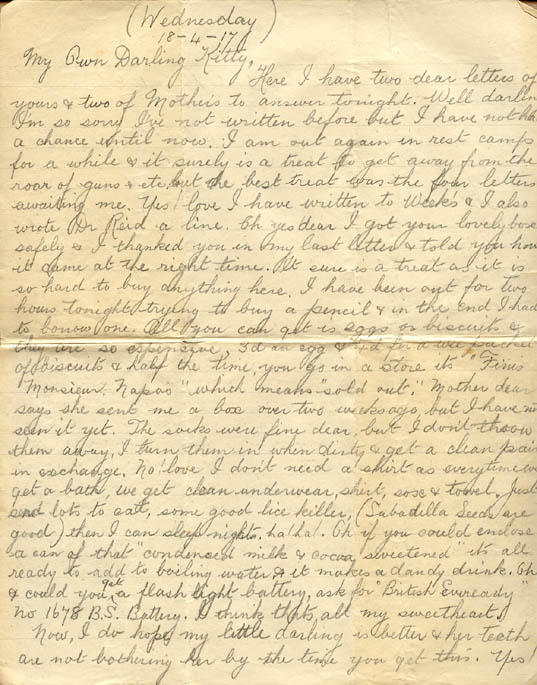 (Wednesday)
18-4-17
My Own Darling Kitty,
Here I have two dear letters of
yours & two of Mother's to answer tonight. Well darlin
I'm so sorry I've not written before but I have not ha
a chance until now. I am out again in rest camps
for a while & it surely is a treat to get away from the
roar of guns & etc, but the best treat was the four letters
awaiting me. Yes! love I have written to Weeks & I also
wrote Dr Reid a line. Oh yes dear I got your lovely box
safely & I thanked you in my last letter & told you how
it came at the right time. It sure is a treat as it is
so hard to buy anything here. I have been out for two
hours tonight trying to buy a pencil & in the end I had
to borrow one. All you can get is eggs or biscuits &
they are so expensive, 3d an egg & 4d for a wee packet
of biscuits & half the time, you go in a store its "Finis
Monsieur. Napoo" which means "sold out." Mother dear
says she sent me a box over two weeks ago, but I have no
seen it yet. The socks were fine dear, but I don't throw
them away, I turn them in when dirty & get a clean pair
in exchange. No! love I don't need a shirt as everytime we
get a bath, we get clean underwear, shirt, sox & towel. Just
send lots to eat, some good lice killer, (Sabadilla Seeds are
good) then I can sleep nights. ha! ha! Oh if you could enclose
a can of that condensed milk & cocoa sweetened" its all
ready to add to boiling water & it makes a dandy drink. Oh
& could you get a flash light battery, ask for "British Eveready"
no 1678 B.S. Battery. I think thats all my sweetheart.
Now, I do hope my little darling is better & her teeth
are not bothering her by the time you get this. Yes!